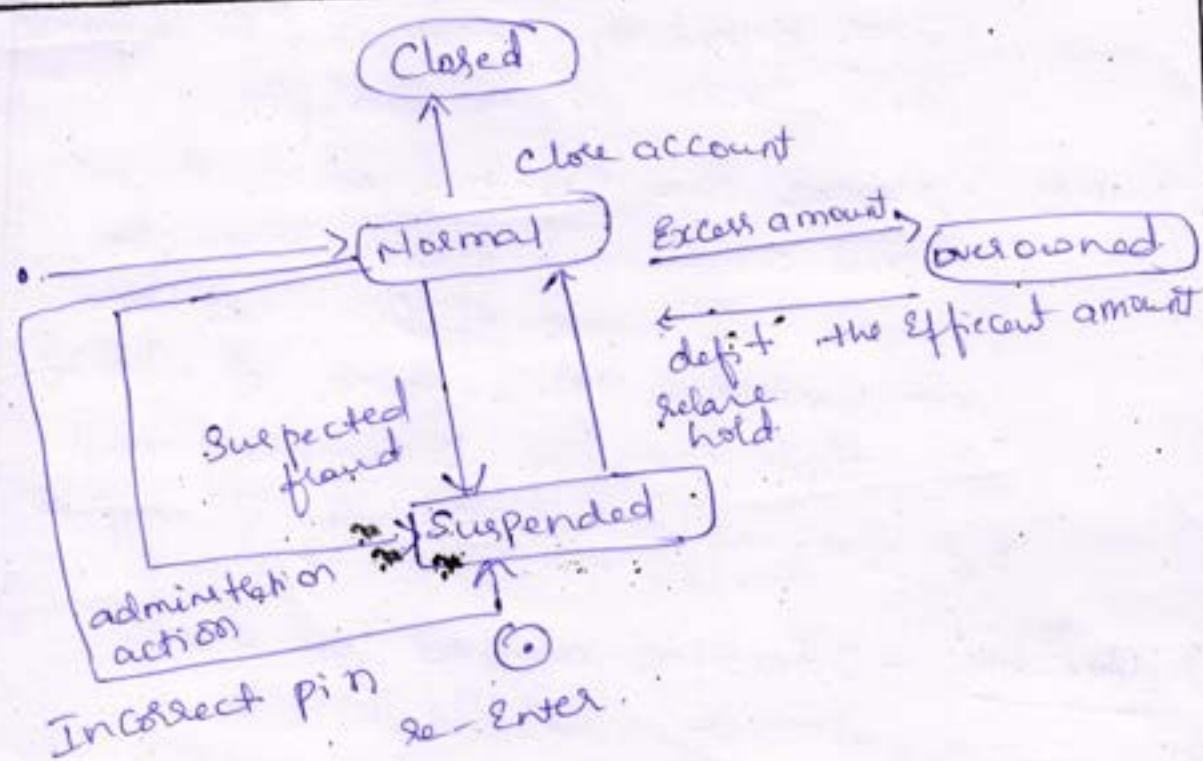 Closed
Close account
Normal
Excess amount
overowned
depit the Efficent amount
relase
hold
Suspected
fraud
Suspended
administration
action
Incorrect pin
re-Enter.